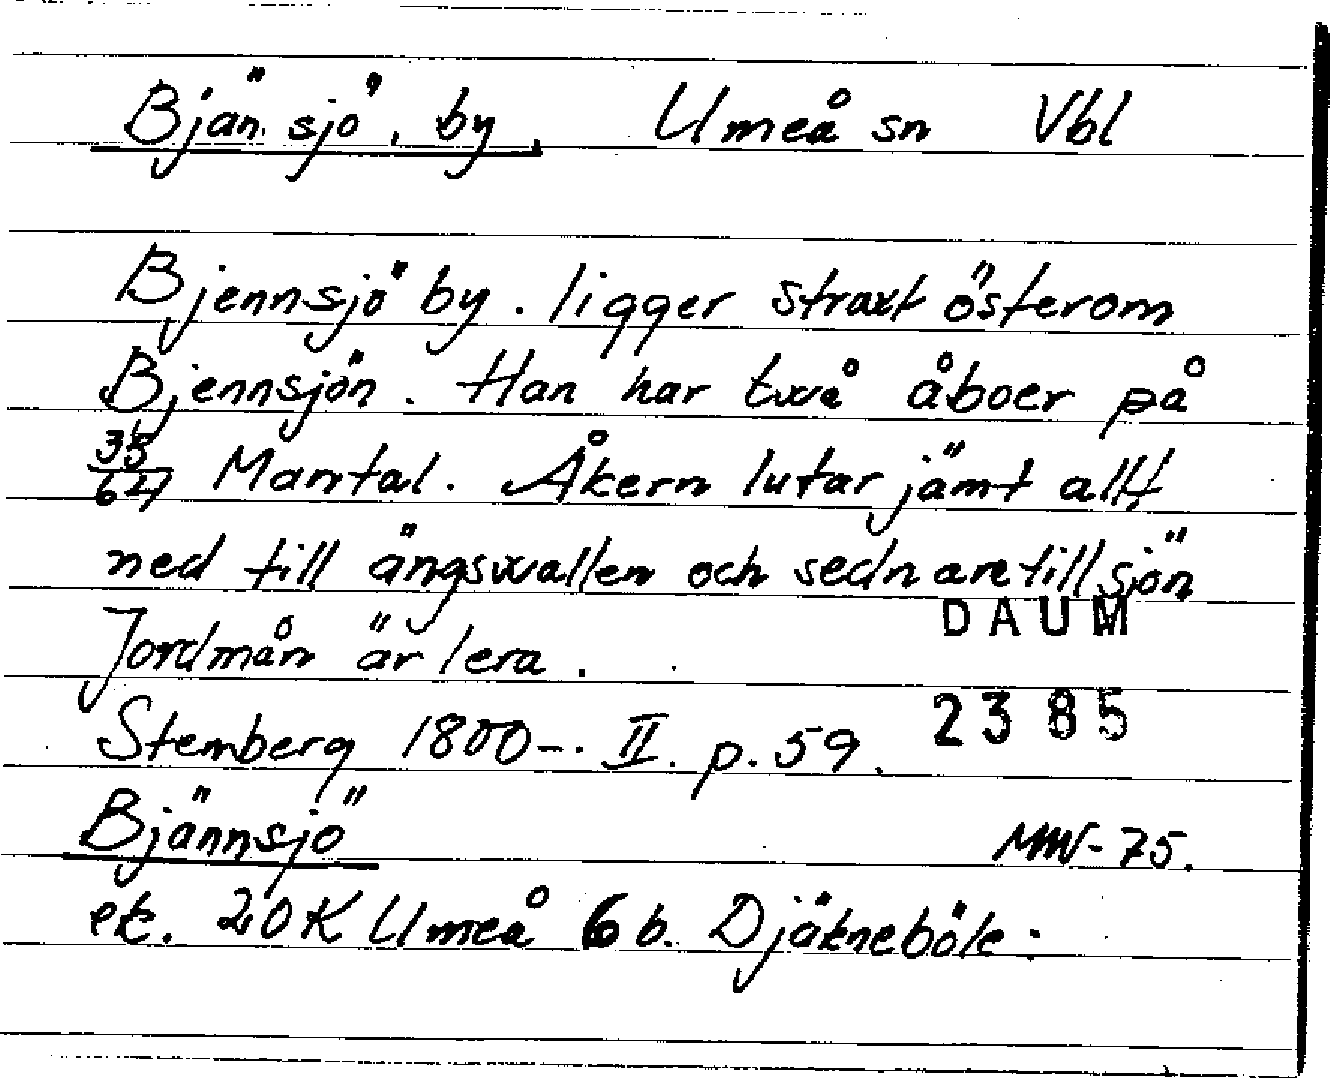 Bjän sjö, by, Umeå sn Vbl
Bjennsjö by. ligger straxt österom
Bjennsjön. Han har twå åboer på
33/64 Mantal. Åkern lutar jämt allt
ned till ängswallen och sednare till sjön
Jordmån är lera.
DAUM
Stenberg 1800-. II. p. 59.
2385
Bjännsjö
MW-75.
ek. 20K Umeå 6b. Djäkneböle.